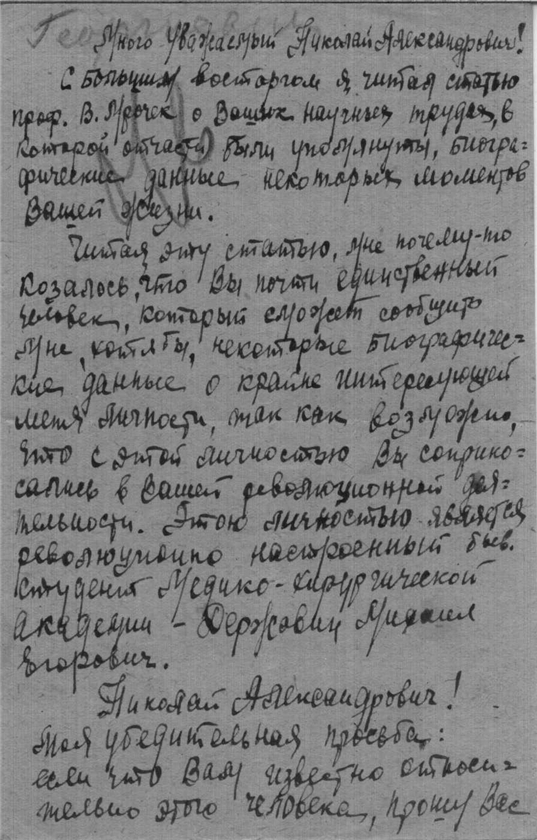 Георгиевич
Много Уважаемый Николай Александрович!
С большим восторгом я читал статью
проф. В. Мрочек о Ваших научных трудах, в
которой отчасти были упомянуты, биогра=
фические данные некоторых моментов
Вашей жизни.
Читая эту статью, мне почему-то
козалось, что Вы почти единственный
человек, который сможет сообщить
мне, хотя бы, некоторые биографичес=
кие данные о крайне интересующей
меня личности, так как возможно,
что с этой личностью Вы соприко=
сались в Вашей революционной дея=
тельности. Этою личностью является
революционно настроенный бывш.
студент Медико-хирургической
Академии - Державин Михаил
Егорович.
Николай Александрович!
Моя убедительная просьба:
если что Вам известно относи=
тельно этого человека, прошу Вас